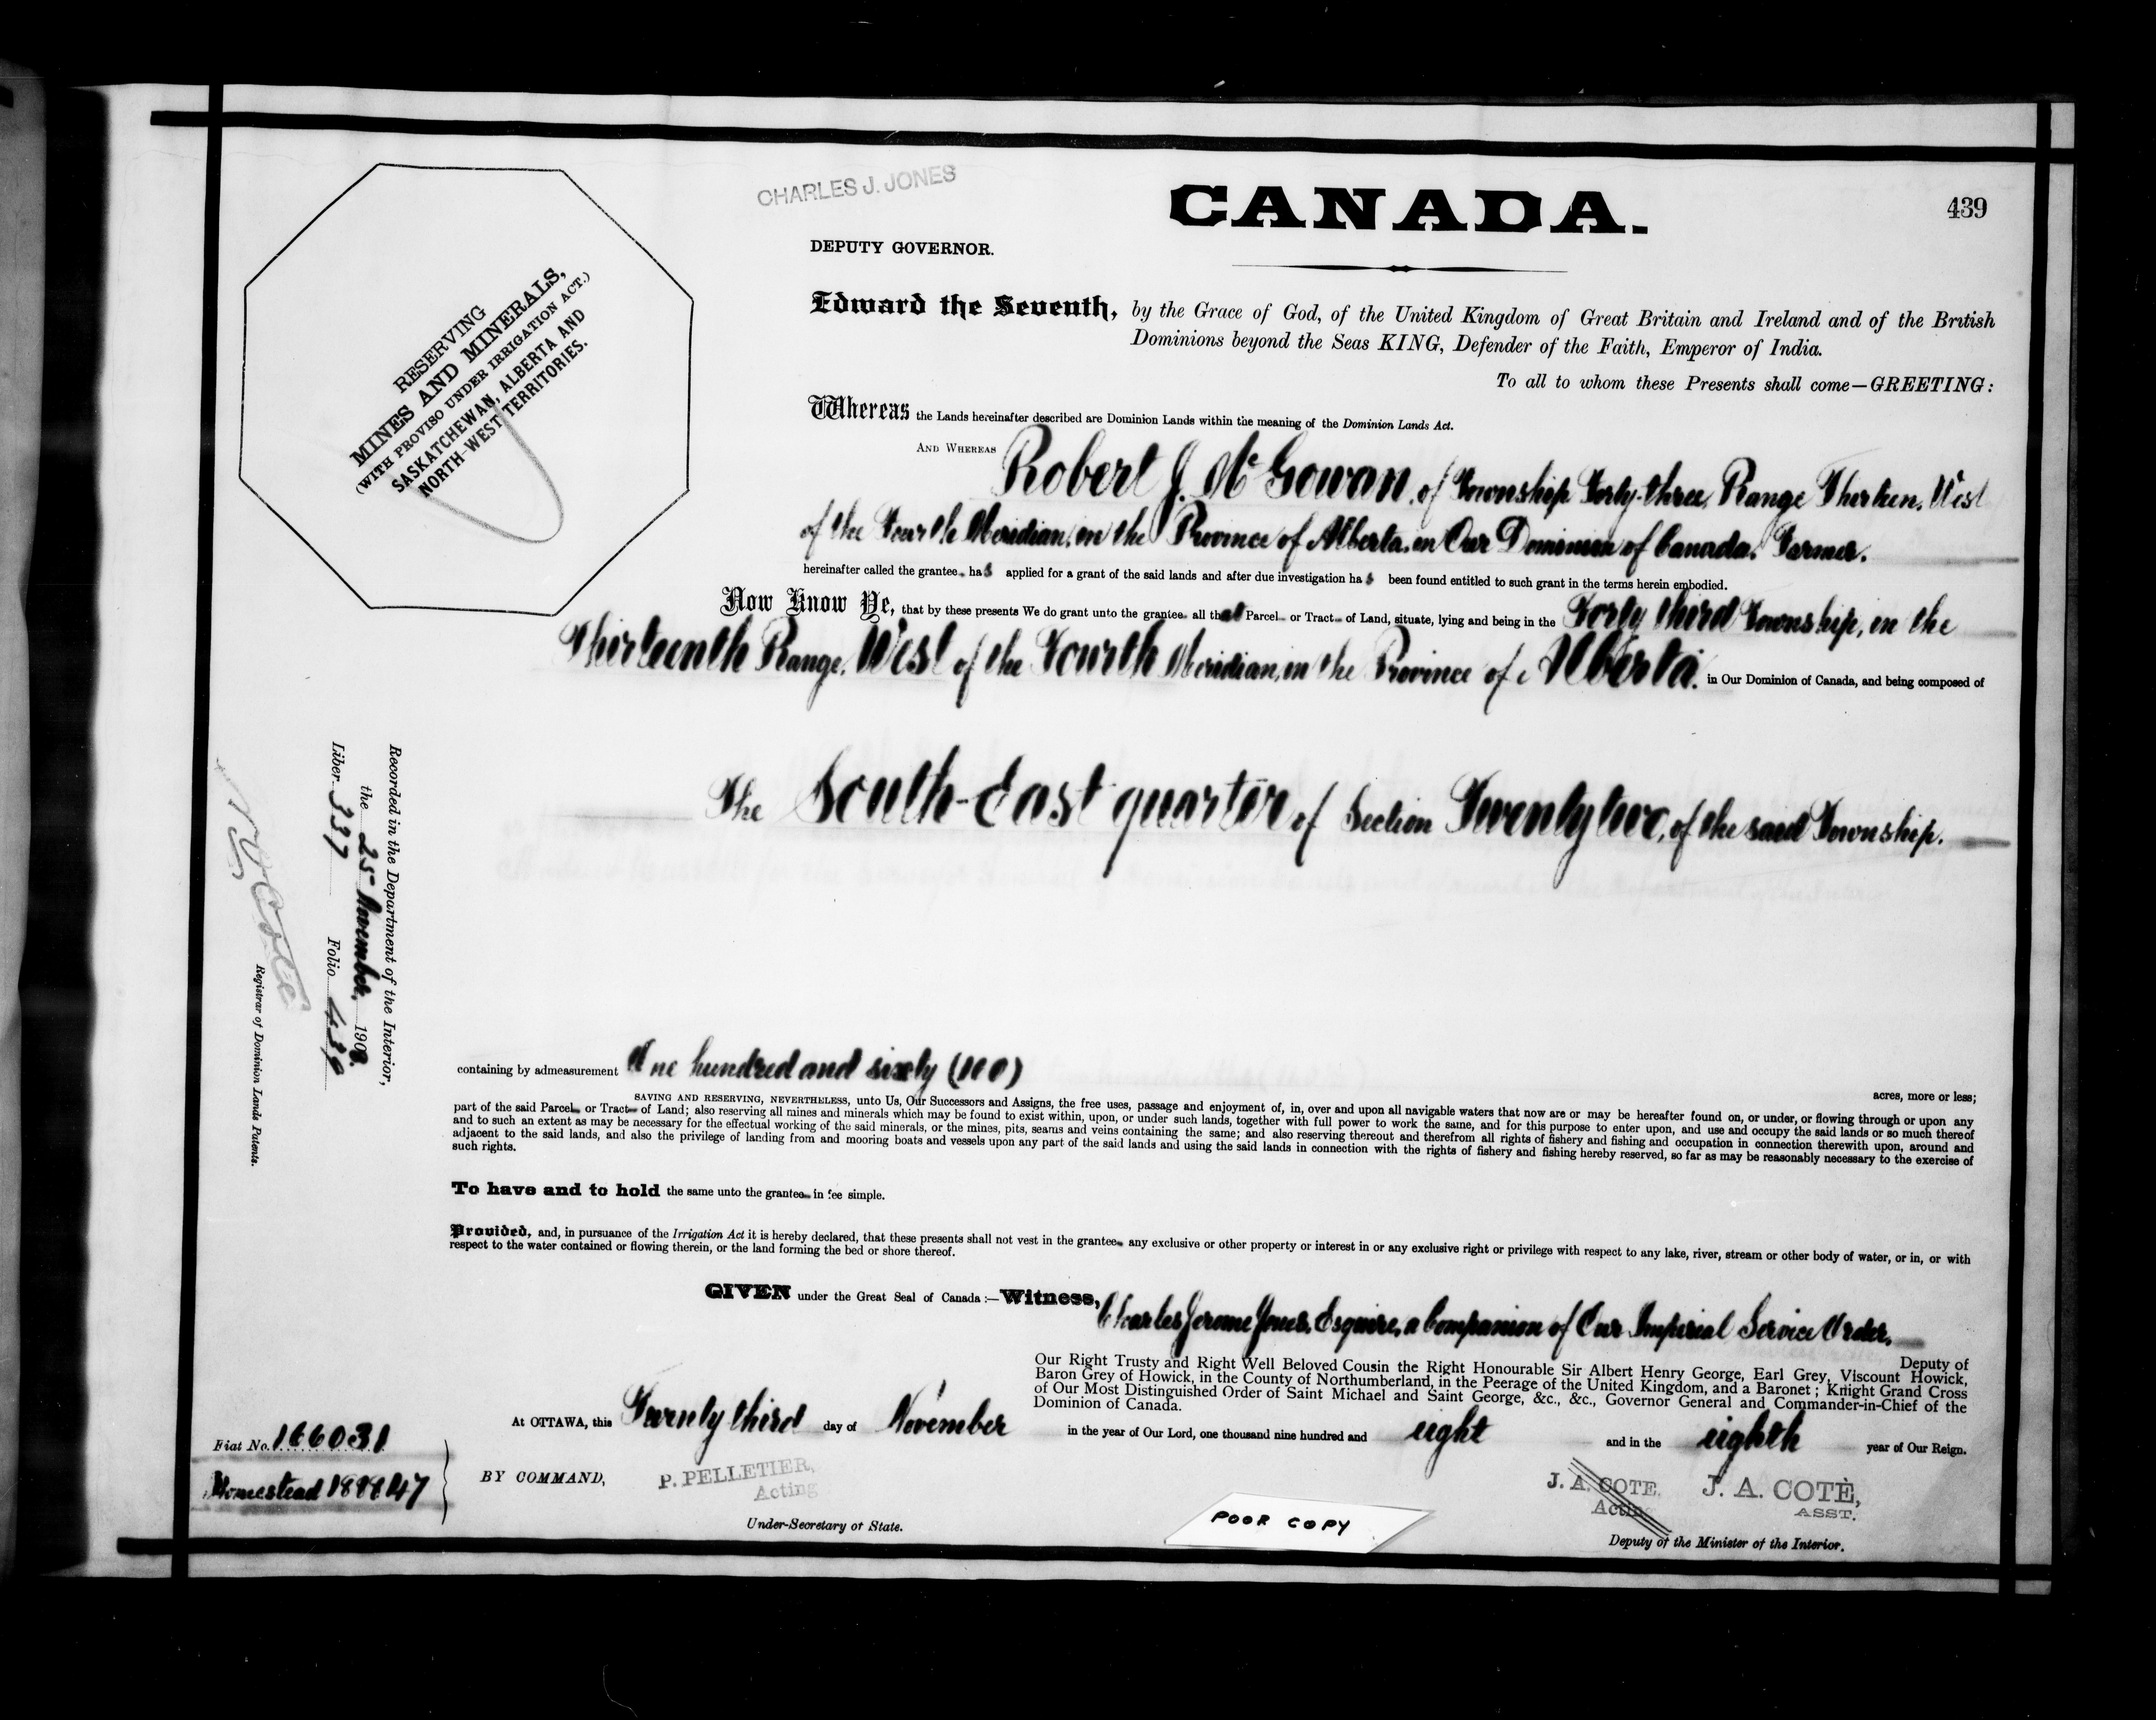 CHARLES J. JONES
CANADA.
439
DEPUTY GOVERNOR.
RESERVING
MINES AND MINERALS,
(WITH PROVISO UNDER IRRIGATION ACT.)
SASKATCHEWAN, ALBERTA AND
NORTH-WEST TERRITORIES.
Edward the Seventh, by the Grace of God, of the United Kingdom of Great Britain and Ireland and of the British
Dominions beyond the Seas KING, Defender of the Faith, Emperor of India.
To all to whom these Presents shall come—GREETING:
Whereas the Lands hereinafter described are Dominion Lands within the meaning of the Dominion Lands Act.
AND WHEREAS Robert J. McGowan, of Township Forty-three, Range Thirteen, West
of the Fourth Meridian, in the Province of Alberta, in Our Dominion of Canada, Farmer.
hereinafter called the grantee has applied for a grant of the said lands and after due investigation has been found entitled to such grant in the terms herein embodied.
Now Know Ye, that by these presents We do grant unto the grantee all that Parcel or Tract of Land, situate, lying and being in the Forty third Township, in the
Thirteenth Range, West of the Fourth Meridian, in the Province of Alberta, in Our Dominion of Canada, and being composed of
The South-East quarter of Section Twenty two, of the said Township.
Recorded in the Department of the Interior,
the 25 November, 1908
Liber 337 Folio 439
N O Coté
Registrar of Dominion Lands Patents.
containing by admeasurement One hundred and sixty (160)
acres, more or less;
SAVING AND RESERVING, NEVERTHELESS, unto Us, Our Successors and Assigns, the free uses, passage and enjoyment of, in, over and upon all navigable waters that now are or may be hereafter found on, or under, or flowing through or upon any
part of the said Parcel or Tract of Land; also reserving all mines and minerals which may be found to exist within, upon, or under such lands, together with full power to work the same, and for this purpose to enter upon, and use and occupy the said lands or so much thereof
and to such an extent as may be necessary for the effectual working of the said minerals, or the mines, pits, seams and veins containing the same; and also reserving thereout and therefrom all rights of fishery and fishing and occupation in connection therewith upon, around and
adjacent to the said lands, and also the privilege of landing from and mooring boats and vessels upon any part of the said lands and using the said lands in connection with the rights of fishery and fishing hereby reserved, so far as may be reasonably necessary to the exercise of
such rights.
To have and to hold the same unto the grantee in fee simple.
Provided, and, in pursuance of the Irrigation Act it is hereby declared, that these presents shall not vest in the grantee any exclusive or other property or interest in or any exclusive right or privilege with respect to any lake, river, stream or other body of water, or in, or with
respect to the water contained or flowing therein, or the land forming the bed or shore thereof.
GIVEN under the Great Seal of Canada:—Witness, Charles Jerome Jones, Esquire, a Companion of Our Imperial Service Order,
Deputy of
Our Right Trusty and Right Well Beloved Cousin the Right Honourable Sir Albert Henry George, Earl Grey, Viscount Howick,
Baron Grey of Howick, in the County of Northumberland, in the Peerage of the United Kingdom, and a Baronet; Knight Grand Cross
of Our Most Distinguished Order of Saint Michael and Saint George, &c., &c., Governor General and Commander-in-Chief of the
Dominion of Canada.
At OTTAWA, this Twenty third day of November in the year of Our Lord, one thousand nine hundred and eight and in the eighth year of Our Reign.
Fiat No. 166031
Homestead
BY COMMAND,
P. PELLETIER,
Acting
Under-Secretary of State.
POOR COPY
J. A. COTE,
Acting
J. A. COTÈ,
ASST.
Deputy of the Minister of the Interior.